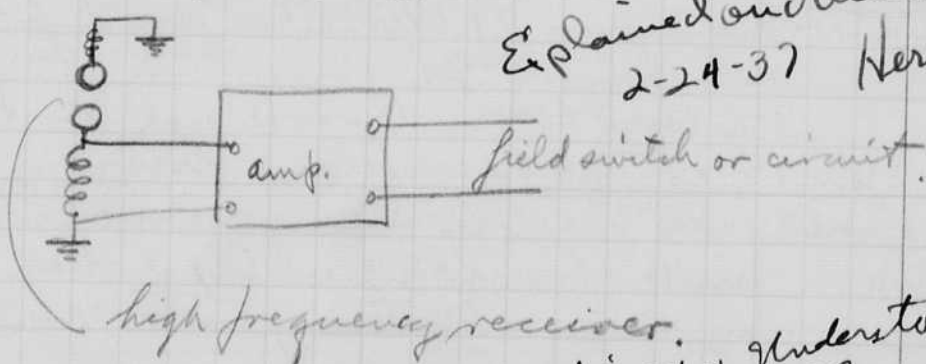 Explained and
2-24-37 Her
amp.
field switch or circuit.
high frequency receiver.
Understo